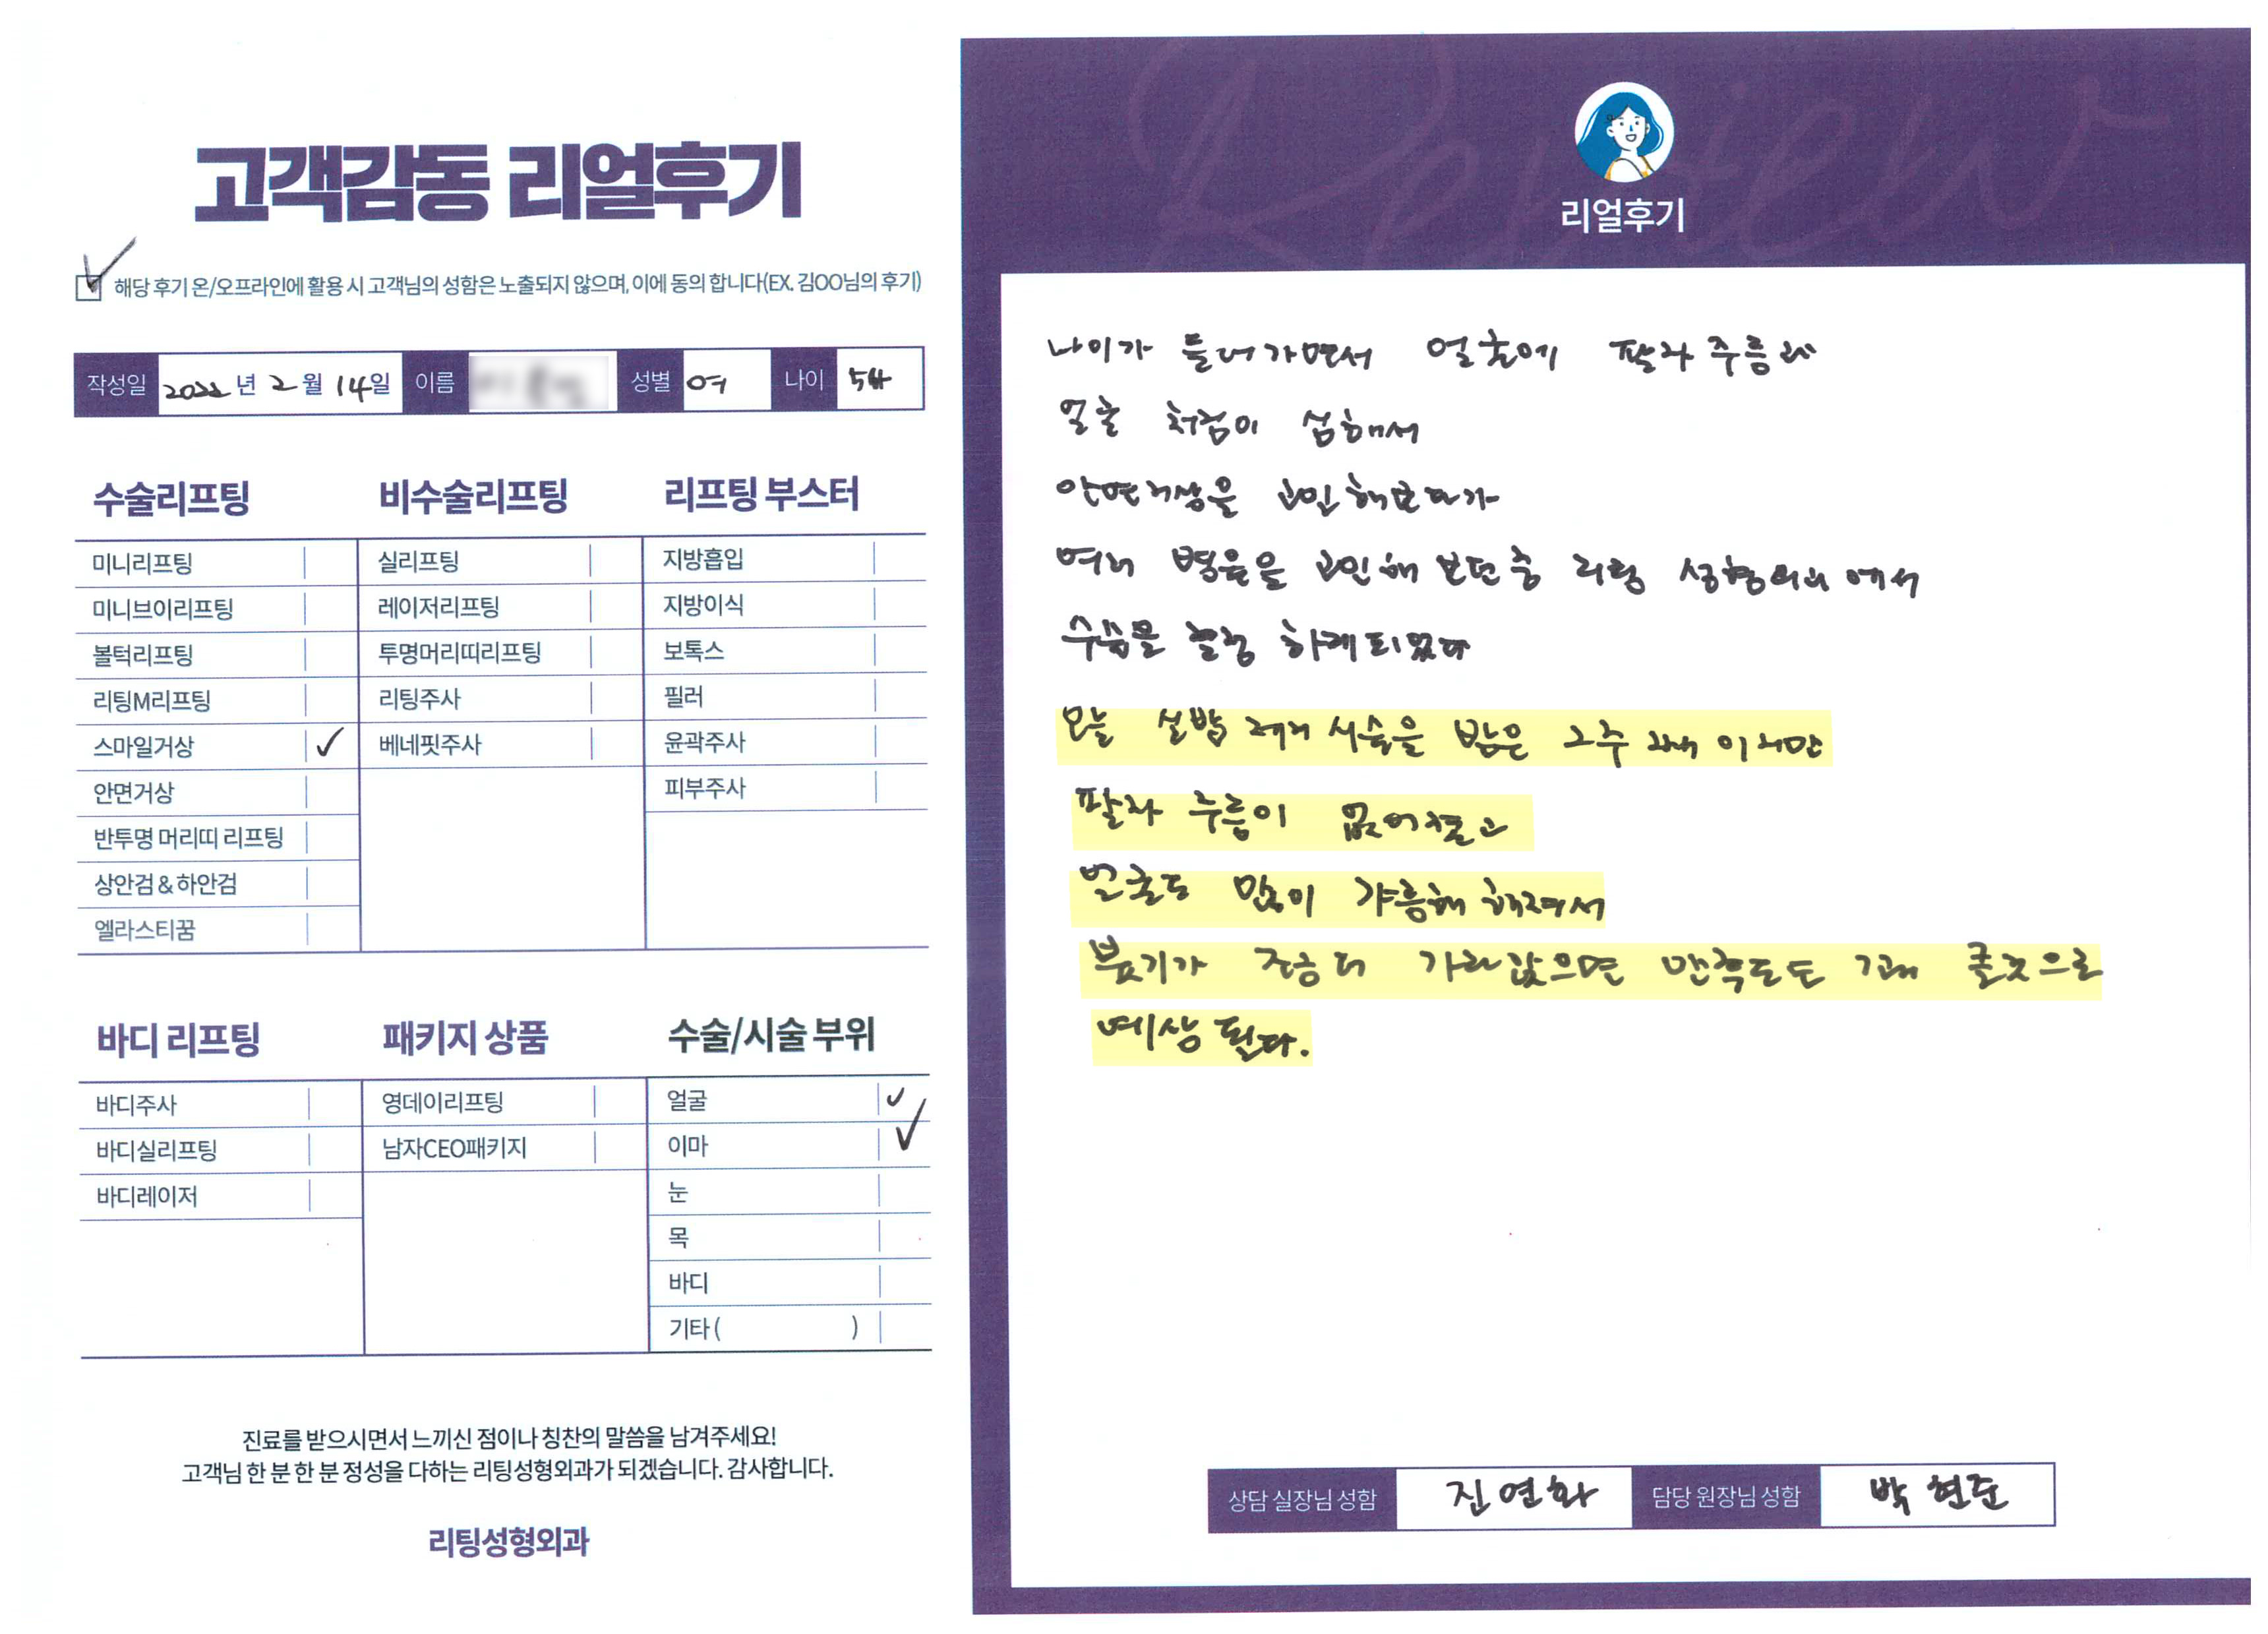 고객감동 리얼후기
해당 후기 온/오프라인에 활용 시 고객님의 성함은 노출되지 않으며, 이에 동의 합니다(EX. 김OO님의 후기)
작성일 2022년 2월 14일 이름 성별 여 나이 54
수술리프팅
미니리프팅
미니브이리프팅
볼턱리프팅
리팅M리프팅
스마일거상 ✓
안면거상
반투명 머리띠 리프팅
상안검 & 하안검
엘라스티꿈
비수술리프팅
실리프팅
레이저리프팅
투명머리띠리프팅
리팅주사
베네핏주사
리프팅 부스터
지방흡입
지방이식
보톡스
필러
윤곽주사
피부주사
바디 리프팅
바디주사
바디실리프팅
바디레이저
패키지 상품
영데이리프팅
남자CEO패키지
수술/시술 부위
얼굴 ✓
이마 ✓
눈
목
바디
기타 ( )
진료를 받으시면서 느끼신 점이나 칭찬의 말씀을 남겨주세요!
고객님 한 분 한 분 정성을 다하는 리팅성형외과가 되겠습니다. 감사합니다.
리팅성형외과
Review
리얼후기
나이가 들어가면서 얼굴에 팔자 주름과
얼굴 처짐이 심해서
안면거상을 고민해보다가
여러 병원을 고민해 보던중 리팅 성형외과 에서
수술을 결정 하게되었다
오늘 실밥 제거 시술을 받은 2주 째 이지만
팔자 주름이 없어졌고
얼굴도 많이 갸름해 해져서
붓기가 조금 더 가라앉으면 만족도도 꽤 클것으로
예상 된다.
상담 실장님 성함 진연화 담당 원장님 성함 박현준